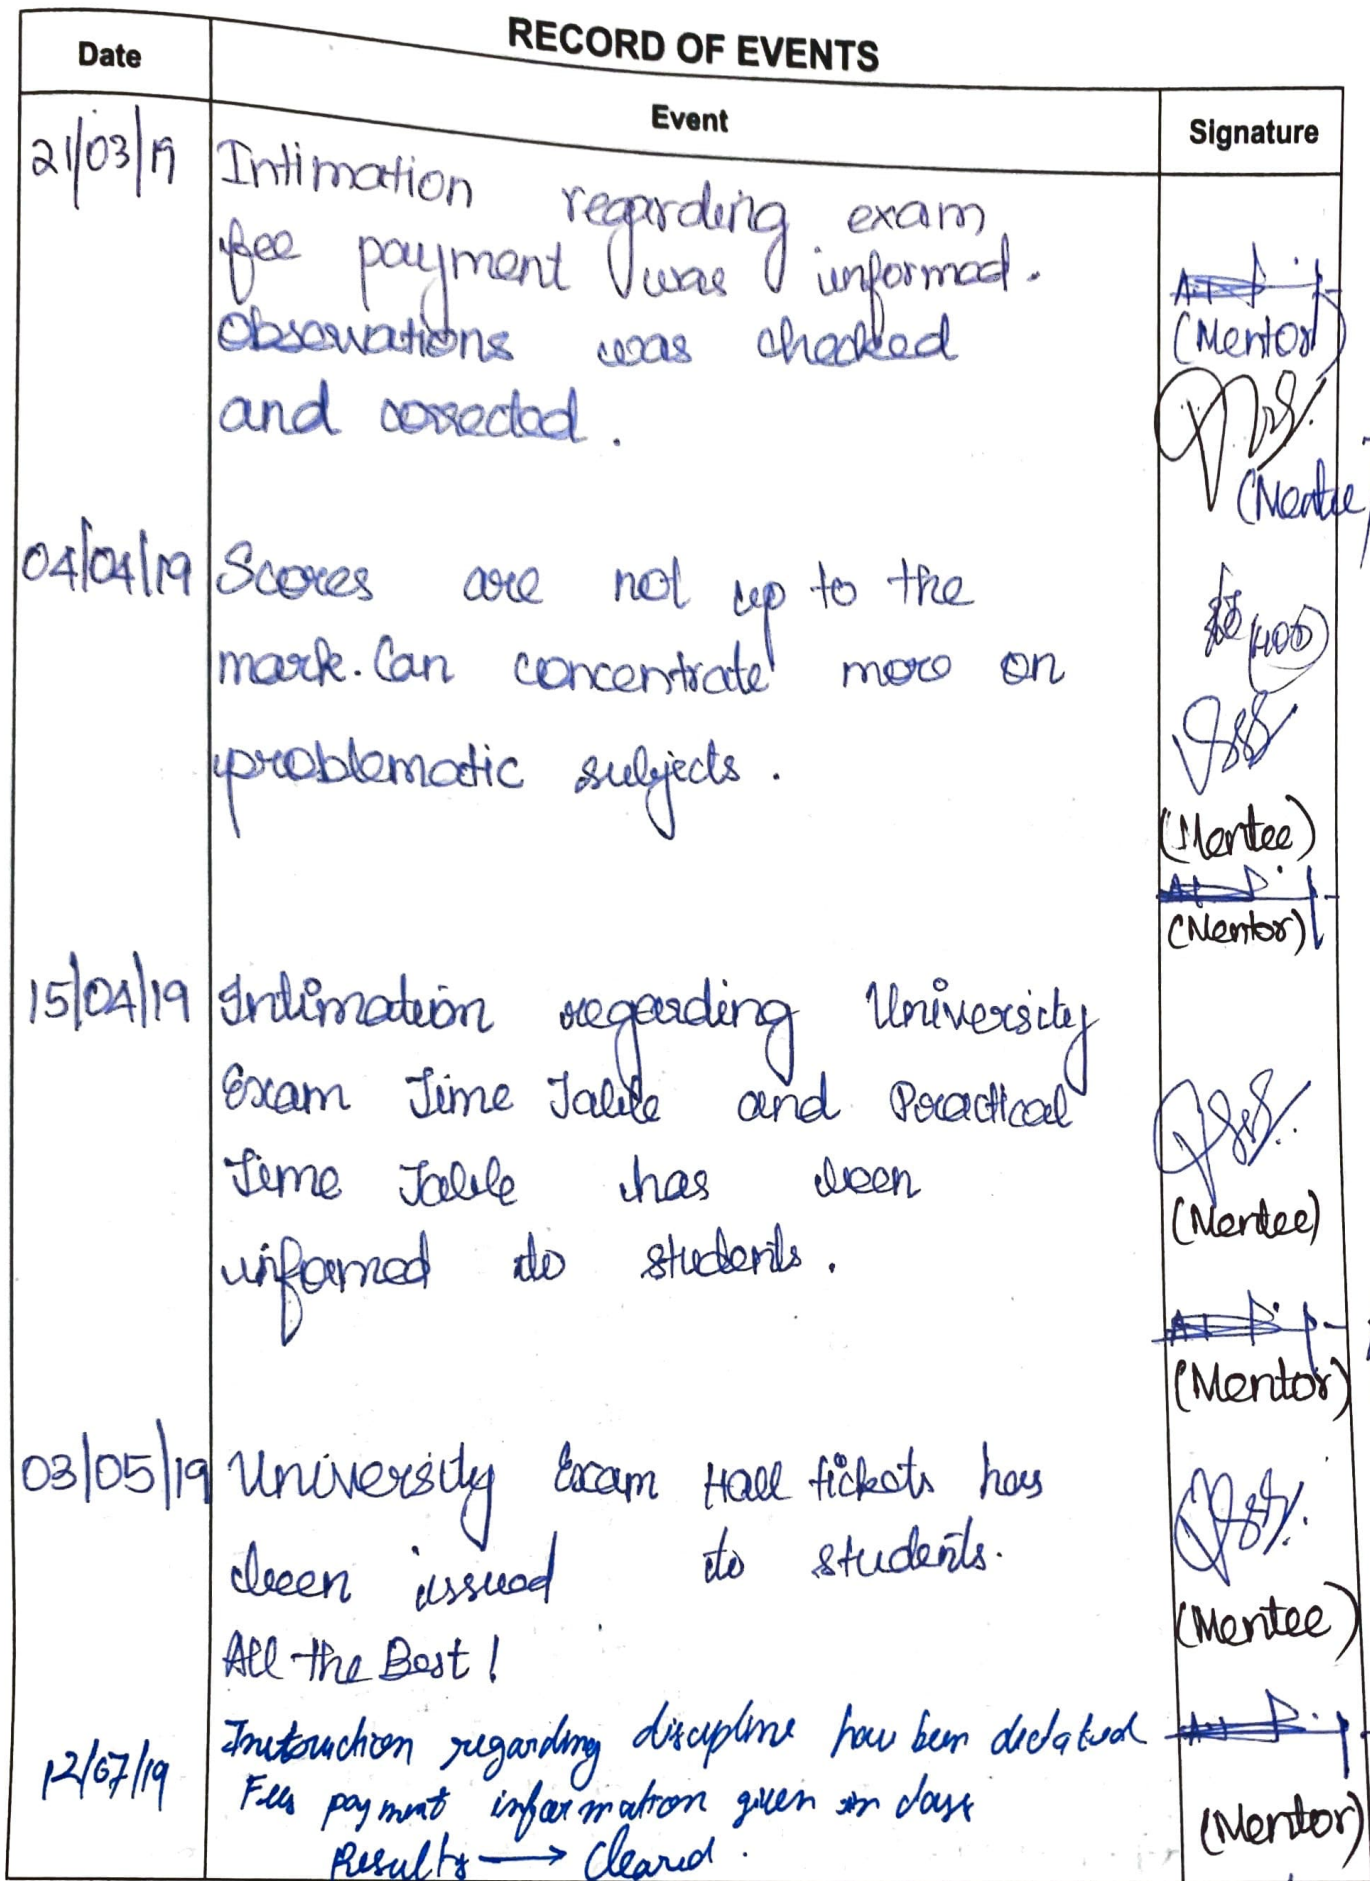 RECORD OF EVENTS
Date
Event
Signature
21/03/19
Intimation regarding exam
fee payment was informed.
Observations was checked
and corrected.
(Mentor)
(Mentee)
04/04/19
Scores are not up to the
mark. Can concentrate more on
problematic subjects.
(HOD)
(Mentee)
(Mentor)
15/04/19
Intimation regarding University
Exam Time Table and Practical
Time Table has been
informed to students.
(Mentee)
(Mentor)
03/05/19
University Exam Hall tickets has
been issued to students.
All the Best!
(Mentee)
12/07/19
Instruction regarding discipline have been dictated
Fees payment information given in class
Results → Cleared.
(Mentor)